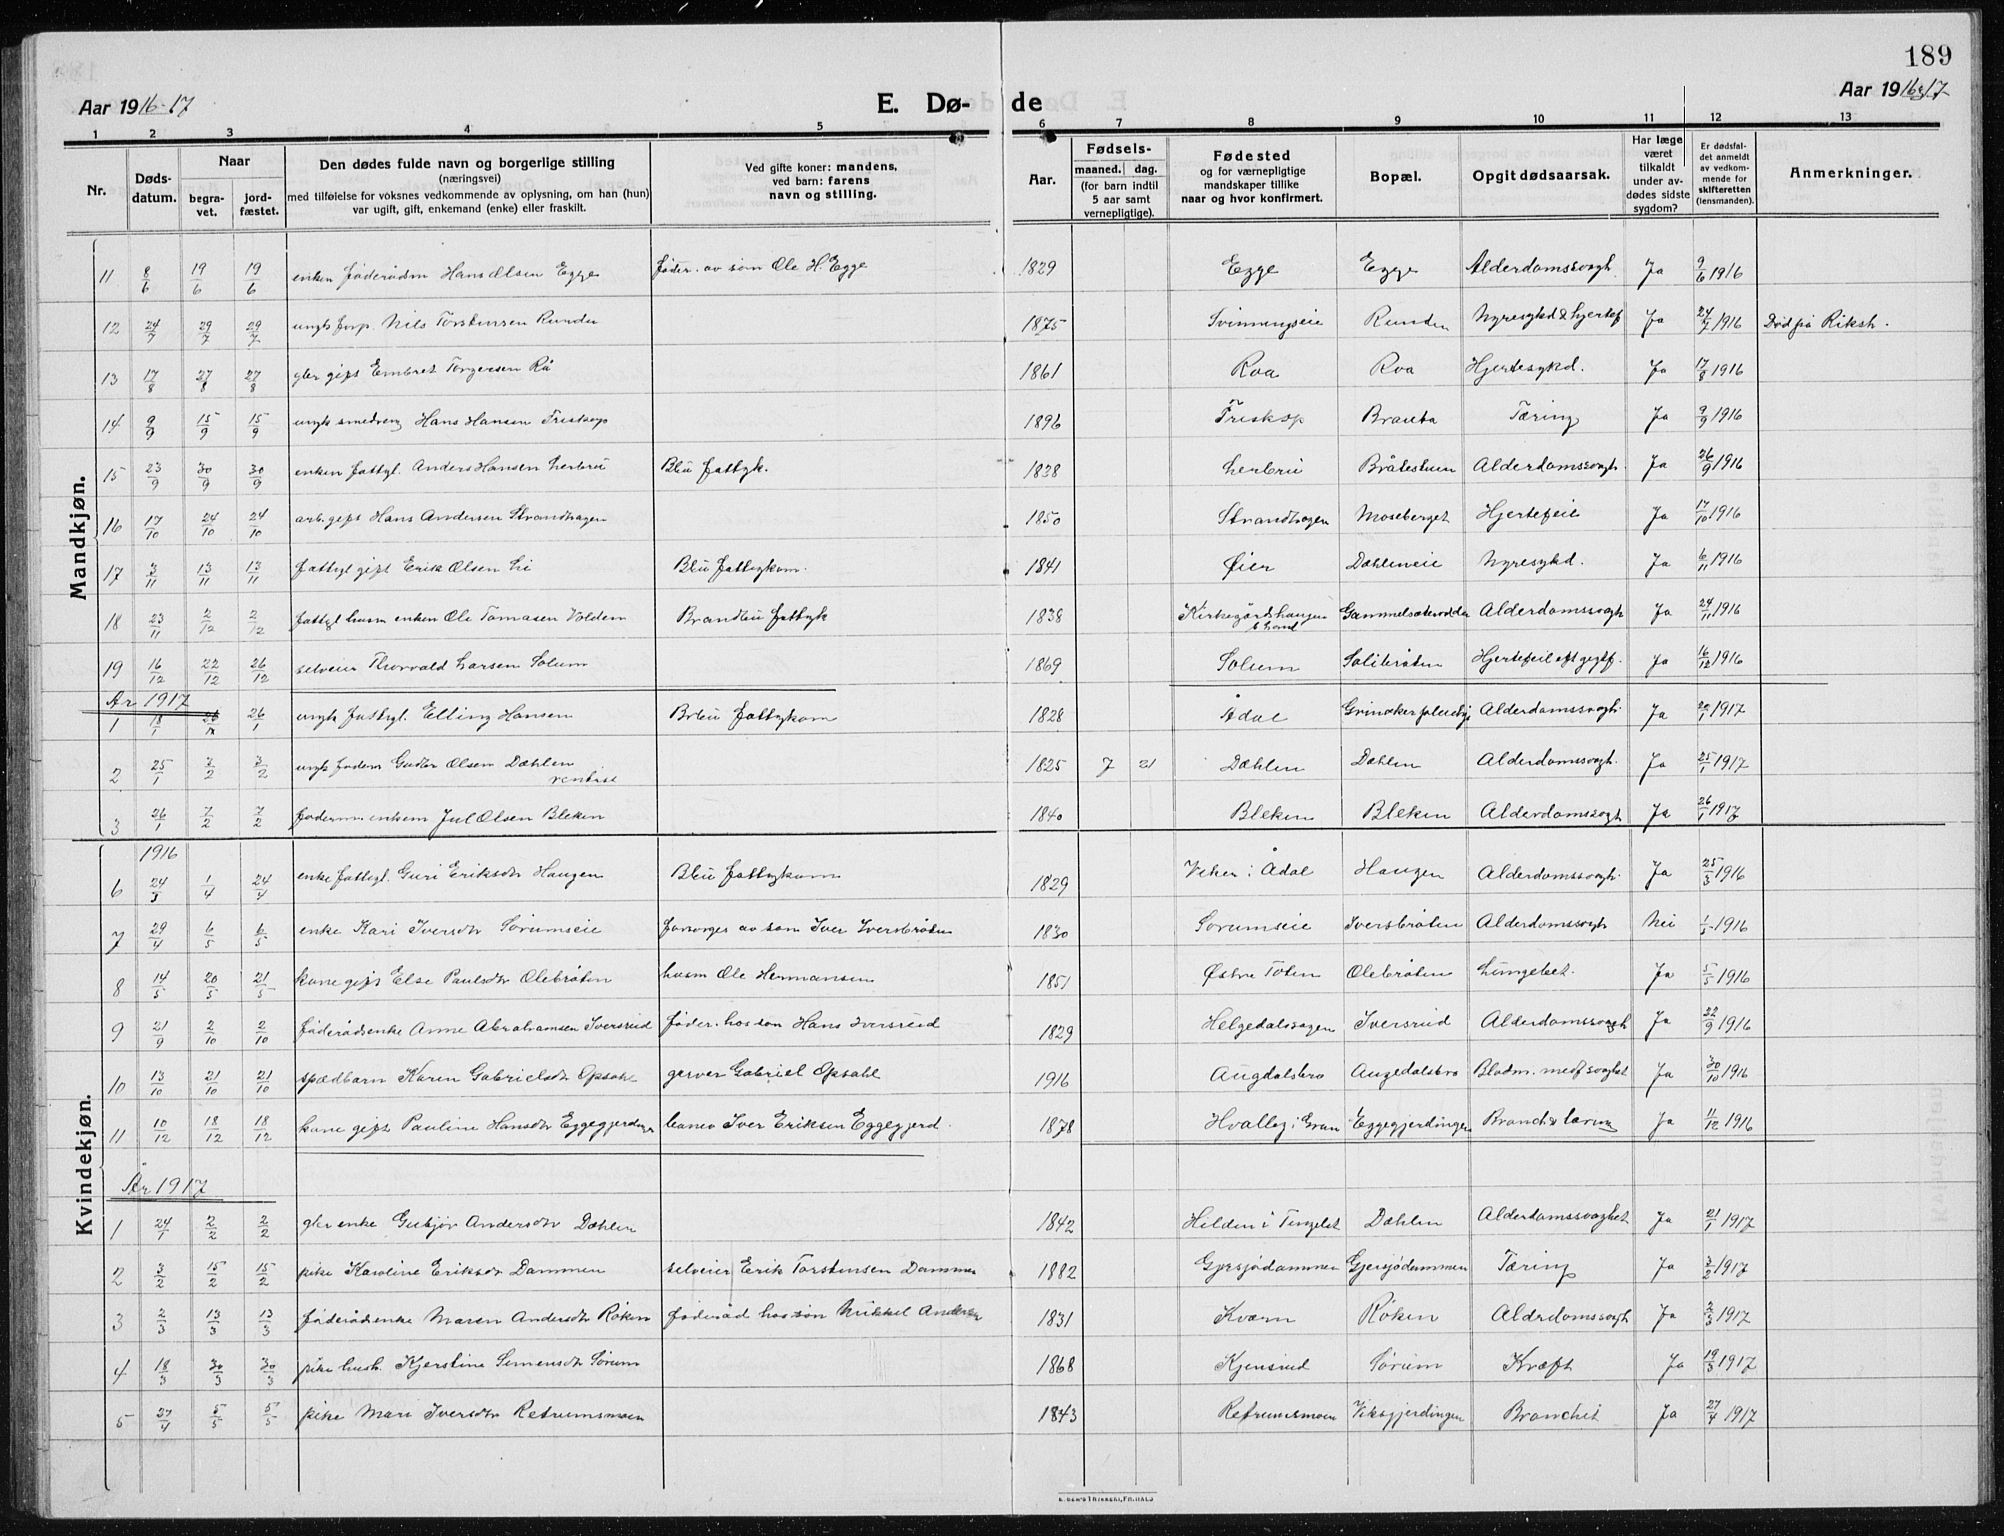 189
Aar 1916-17 E. Dø- de Aar 1916-17
1 2 3 4 5 6 7 8 9 10 11 12 13
Nr. Døds-datum. Naar begra-vet. jord-fæstet. Den dødes fulde navn og borgerlige stilling (næringsvei) med tilføielse for voksnes vedkommende av oplysning, om han (hun) var ugift, gift, enkemand (enke) eller fraskilt. Ved gifte koner: mandens, ved barn: farens navn og stilling. Aar. Fødsels- maaned. dag. (for barn indtil 5 aar samt vernepligtige). Fødested og for værnepligtige mandskaper tillike naar og hvor konfirmert. Bopæl. Opgit dødsaarsak. Har læge været tilkaldt under av-dødes sidste sygdom? Er dødsfal-det anmeldt av vedkom-mende for skifteretten (lensmanden). Anmerkninger.
Mandkjøn.
11 8/6 19/6 19/6 enkem føderådsm Hans Olsen Egge føder. av søn Ole H. Egge 1829 Egge Egge Alderdomssvagh. Ja 9/6 1916
12 24/7 29/7 29/7 ungk forp. Nils Torstensen Runden 1875 Svinningseie Runden Nyresykd & hjertef Ja 24/7 1916 Død på Riksh.
13 17/8 27/8 27/8 gbr gift Embret Torgersen Rå 1861 Roa Roa Hjertesykd. Ja 17/8 1916
14 9/9 15/9 15/9 ungk smedreng Hans Hansen Friskop 1896 Friskop Brauta Tæring Ja 9/9 1916
15 23/9 30/9 30/9 enkem fattigl. Anders Hansen Lerbru Bleu fattigk. 1838 Lerbru Bråtestuen Alderdomssvagh. Ja 26/9 1916
16 17/10 24/10 24/10 arb. gift Hans Andersen Strandhagen 1850 Strandhagen Moseberget Hjertefeil Ja 17/10 1916
17 3/11 13/11 13/11 fattigl gift Erik Olsen Li Bleu fattigkom. 1841 Øier Dæhleneie Nyresykd. Ja 6/11 1916
18 23/11 2/12 2/12 fattigl husm enkem Ole Tomasen Voldem Brandbu fattigk 1838 Kirkegårdshaugen Gammelsæterødden Alderdomssvagh Ja 24/11 1916
19 16/12 22/12 26/12 selveier Thorvald Larsen Solum 1869 Solum Solibråten Hjertefeil eft gigtf. Ja 16/12 1916
År 1917
1 18/1 26/1 26/1 ungk fattigl. Elling Hansen Bleu fattigkom 1828 Ådal Alderdomssvagh. Ja 20/1 1917
2 25/1 3/2 3/2 ungk føderm Gudbr Olsen Dæhlen rentist 1825 7 21 Dæhlen Dæhlen Alderdomssvagh. Ja 25/1 1917
3 26/1 7/2 7/2 føderm enkem Jul Olsen Bleken 1840 Bleken Bleken Alderdomssvagh Ja 26/1 1917
Kvindekjøn.
1916
6 24/3 1/4 24/4 enke fattigl. Guri Eriksdtr Haugen Bleu fattigkom 1829 Viker i Ådal Haugen Alderdomssvagh. Ja 25/3 1916
7 29/4 6/5 6/5 enke Kari Iversdtr Sørumseie forsørges av søn Iver Iversbråten 1830 Sørumseie Iversbråten Alderdomssvagh Nei 1/5 1916
8 14/5 20/5 21/5 kone gift Else Paulsdtr Olebråten husm Ole Hermansen 1851 Østre Toten Olebråten Lungebet. Ja 5/5 1916
9 21/9 2/10 2/10 føderådsenke Anne Abrahamsen Iversrud føder. hos søn Hans Iversrud 1829 Helgedalshagen Iversrud Alderdomssvagh Ja 22/9 1916
10 13/10 21/10 21/10 spædbarn Karen Gabrielsdtr Opsahl garver Gabriel Opsahl 1916 Augdalsbro Augedalsbro Blodm. medf svaghet Ja 30/10 1916
11 10/12 18/12 18/12 kone gift Pauline Hansdtr Eggegjerdinge banev Iver Eriksen Eggegjerd. 1878 Hvalleg i Gran Eggegjerdingen Bronch & tæring Ja 11/12 1916
År 1917
1 24/1 2/2 2/2 gbr enke Gubjør Andersdtr Dæhlen 1842 Hilden i Tingelst Dæhlen Alderdomssvaghet Ja 21/1 1917
2 3/2 15/2 15/2 pike Karoline Eriksdtr Dammen selveier Erik Torstensen Dammen 1882 Gjersjødammen Gjersjødammen Tæring Ja 3/2 1917
3 2/3 13/3 13/3 føderådsenke Maren Andersdtr Røken føderåd hos søn Mikkel Andersen 1831 Kværn Røken Alderdomssvagh Ja 2/3 1917
4 18/3 30/3 30/3 pike hush. Kjerstine Simensdtr Sørum 1868 Kjensrud Sørum Kræft Ja 19/3 1917
5 27/4 5/5 5/5 pike Mari Iversdtr Retrumsmoen 1843 Retrumsmoen Viksgjerdingen Bronchit Ja 27/4 1917